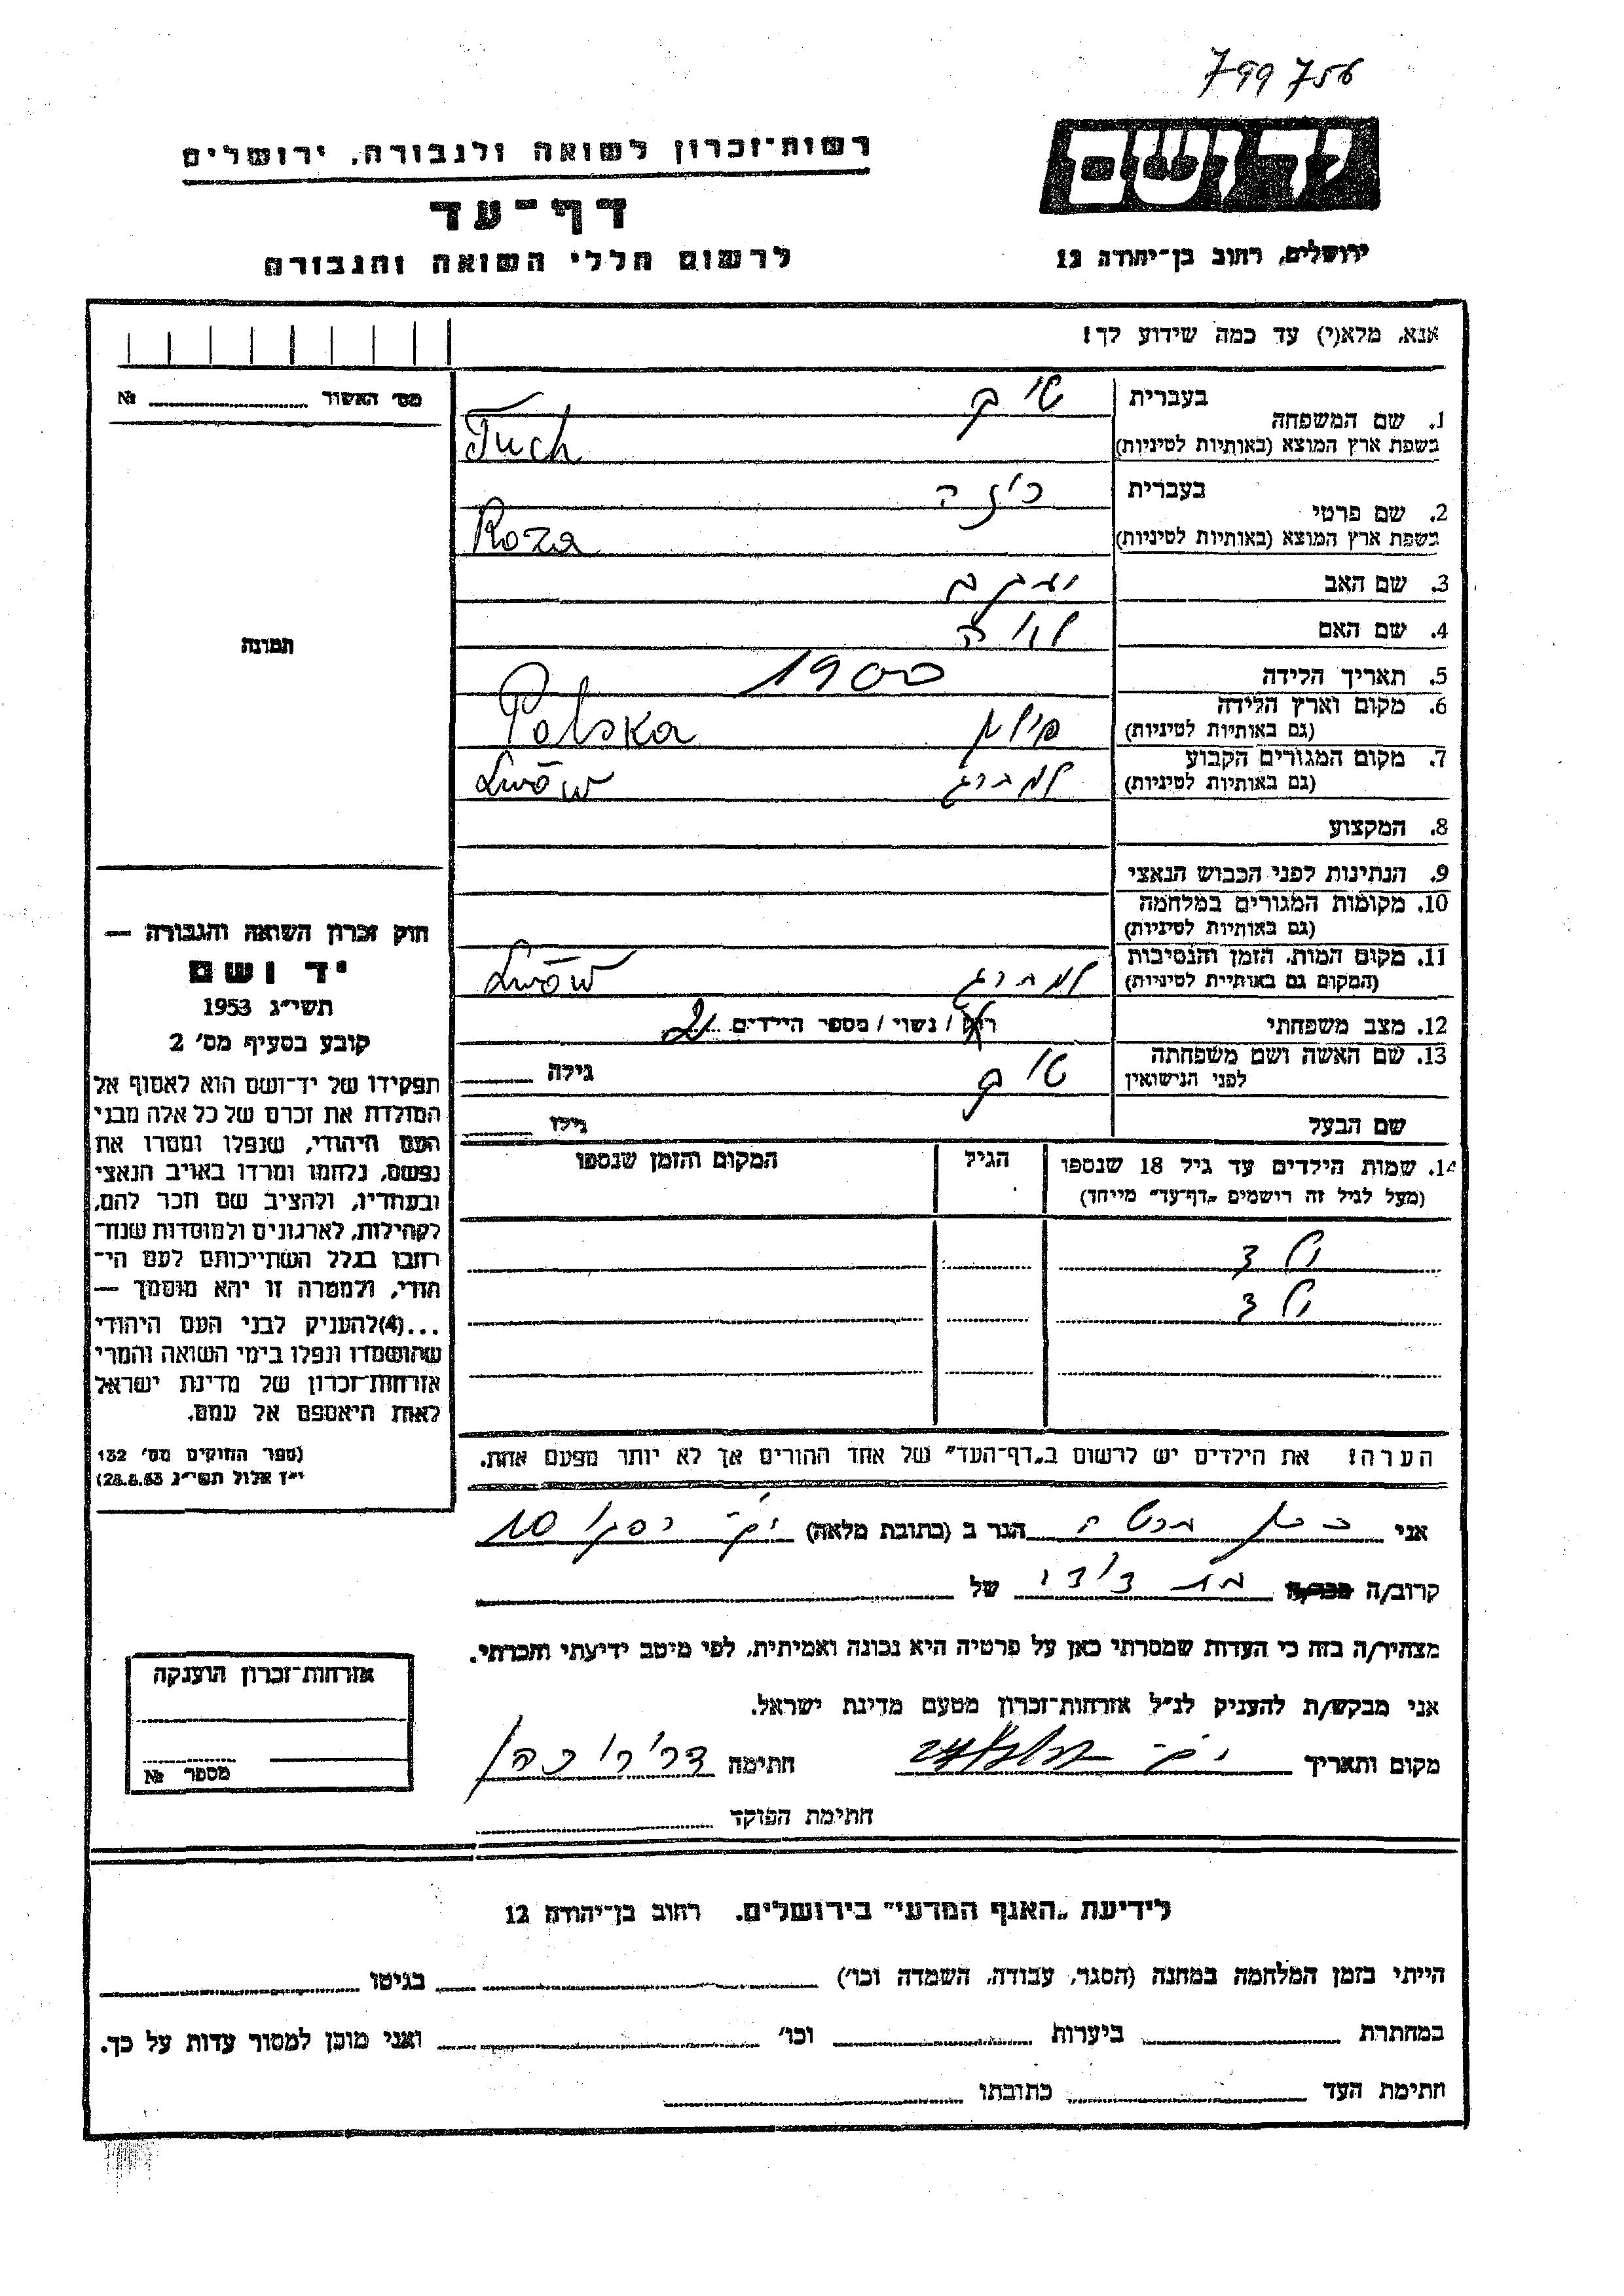 799 756
יד ושם
רשות־זכרון לשואה ולגבורה, ירושלים
דף־עד
לרשום חללי השואה והגבורה
ירושלים, רחוב בן־יהודה 12
אנא, מלא(י) עד כמה שידוע לך!
מס׳ האשור № 
1. שם המשפחה בעברית טוך
בשפת ארץ המוצא (באותיות לטיניות) Tuch
2. שם פרטי בעברית רוזה
בשפת ארץ המוצא (באותיות לטיניות) Roza
3. שם האב יעקב
4. שם האם
תמונה
5. תאריך הלידה 1900
6. מקום וארץ הלידה (גם באותיות לטיניות) פולין Polska
7. מקום המגורים הקבוע (גם באותיות לטיניות) למברג Lwów
8. המקצוע
9. הנתינות לפני הכבוש הנאצי
10. מקומות המגורים במלחמה (גם באותיות לטיניות)
11. מקום המות, הזמן והנסיבות (המקום גם באותיות לטיניות) למברג Lwów
12. מצב משפחתי רוק / נשוי / מספר הילדים 2
13. שם האשה ושם משפחתה לפני הנישואין טוך גילה
שם הבעל גילו
14. שמות הילדים עד גיל 18 שנספו הגיל המקום והזמן שנספו
(מעל לגיל זה רושמים „דף־עד״ מייחד)
ילד
ילד
חוק זכרון השואה והגבורה —
יד ושם
תשי״ג 1953
קובע בסעיף מס׳ 2
תפקידו של יד־ושם הוא לאסוף אל
המולדת את זכרם של כל אלה מבני
העם היהודי, שנפלו ומסרו את
נפשם, נלחמו ומרדו באויב הנאצי
ובעוזריו, ולהציב שם וזכר להם,
לקהילות, לארגונים ולמוסדות שנח־
רבו בגלל השתייכותם לעם הי־
הודי, ולמטרה זו יהא מוסמך —
...(4)להעניק לבני העם היהודי
שהושמדו ונפלו בימי השואה והמרי
אזרחות־זכרון של מדינת ישראל
לאות היאספם אל עמם.
(ספר החוקים מס׳ 132
י״ז אלול תשי״ג 28.8.53)
הערה! את הילדים יש לרשום ב„דף־העד״ של אחד ההורים אך לא יותר מפעם אחת.
אני כהן הגר ב (כתובת מלאה) 10
קרוב/ה מכר/ה בת דודו של
מצהיר/ה בזה כי העדות שמסרתי כאן על פרטיה היא נכונה ואמיתית, לפי מיטב ידיעתי והכרתי.
אני מבקש/ת להעניק לנ״ל אזרחות־זכרון מטעם מדינת ישראל.
מקום ותאריך חתימה כהן
חתימת הפוקד
אזרחות־זכרון הוענקה
מספר №
לידיעת „האגף המדעי״ בירושלים. רחוב בן־יהודה 12
הייתי בזמן המלחמה במחנה (הסגר, עבודה, השמדה וכו׳) בגיטו
במחתרת ביערות וכו׳ ואני מוכן למסור עדות על כך.
חתימת העד כתובתו